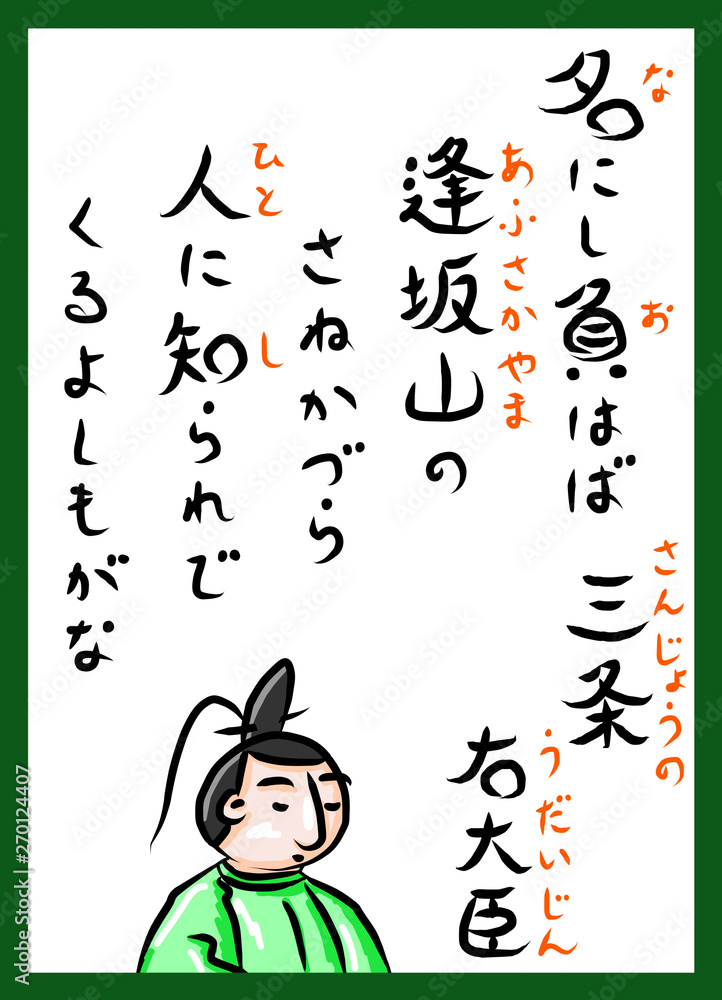 名にし負はば
な
お
逢坂山の
あふさかやま
さねかづら
人に知られで
ひと
し
くるよしもがな
三条
さんじょうの
右大臣
うだいじん
Adobe Stock | #270124407